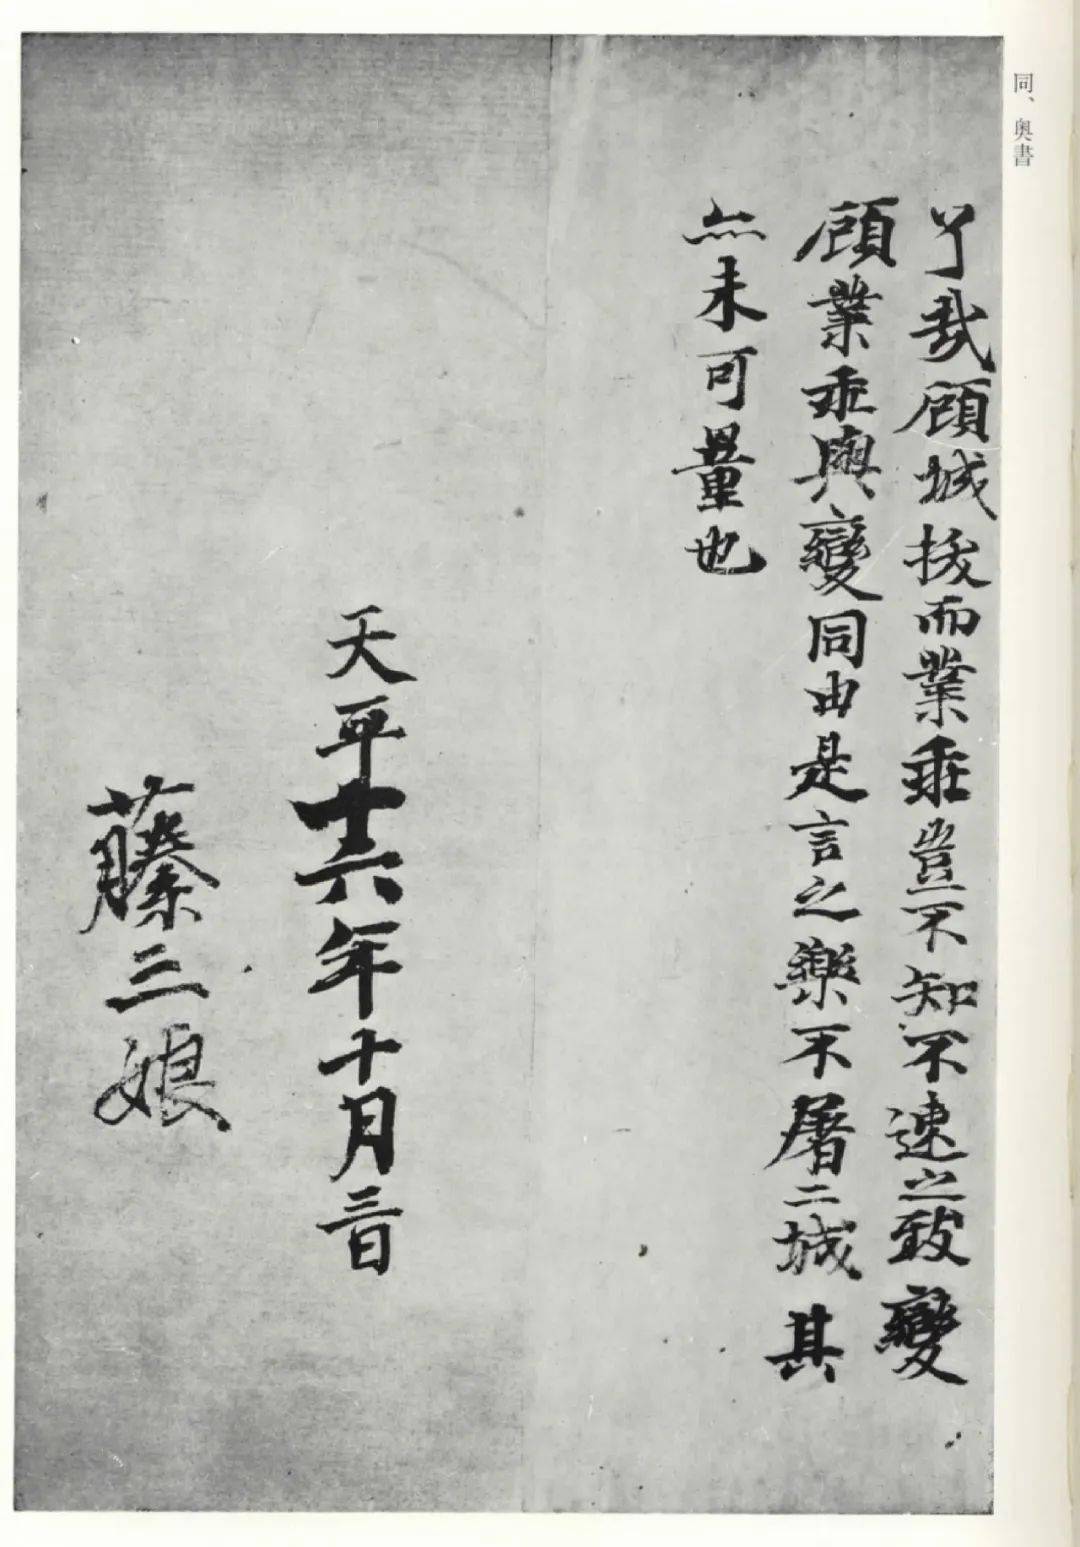 同、奥書
丫哉顧城拔而業乖豈不知不速之致變
顧業乖與變同由是言之樂不屠二城其
亦未可量也
天平十六年十月三日
藤三娘